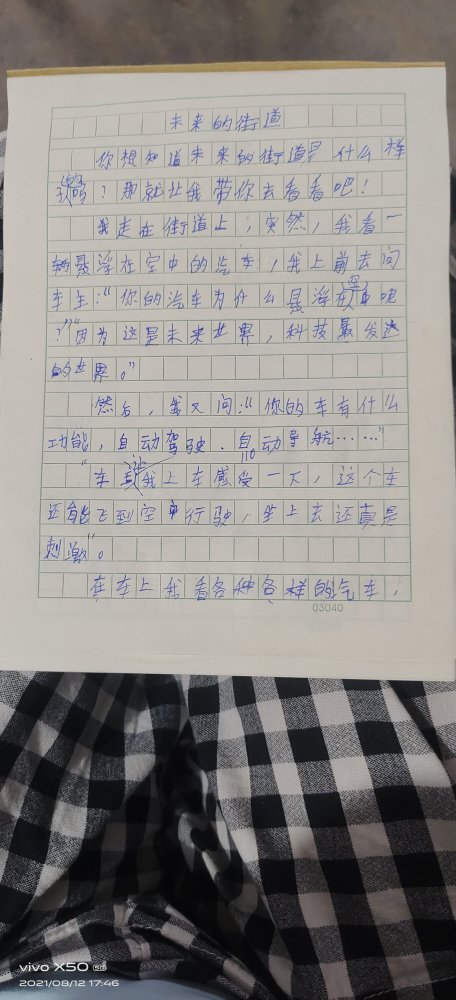 未来的街道
你想知道未来的街道是什么样
? 那就让我带你去看看吧!
我走在街道上,突然,我看一
辆悬浮在空中的汽车,我上前去问
车主:“你的汽车为什么悬浮在空中呢
?”“因为这是未来世界,科技最发达
的世界。”
然后,我又问:“你的车有什么
功能,自动驾驶、自动导航……”
“车 我上车感受一下,这个车
还能飞到空中行驶,坐上去还真是
刺激”。
在车上我看各种各样的汽车,
03040
vivo X50 5G
2021/08/12 17:46